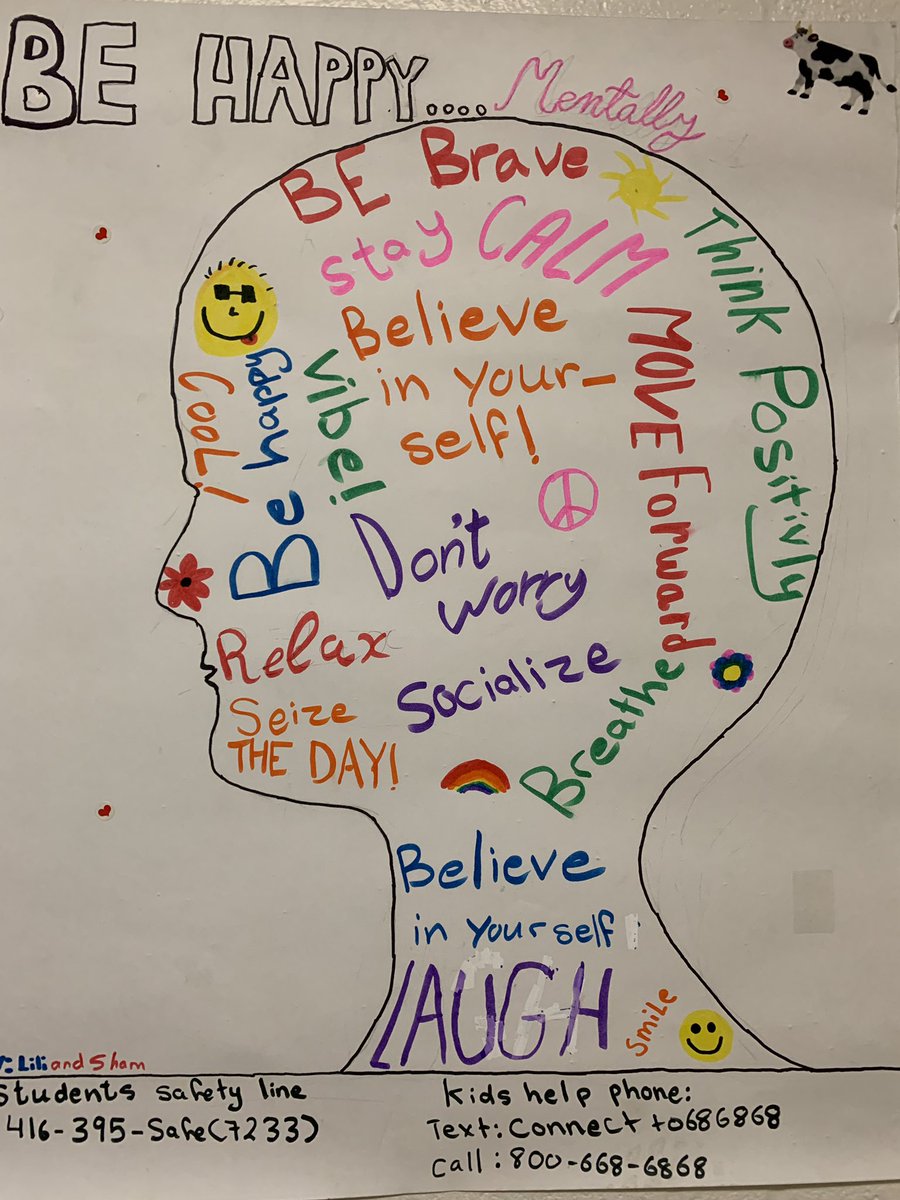 BE HAPPY.... Mentally
BE Brave
stay CALM
Think Positivly
Believe
in your-
self!
MOVE Forward
COOL!
Be happy
vibe!
Don't
worry
Relax
Socialize
Seize
THE DAY!
Breathe
Believe
in yourself
LAUGH
smile
: Lili and Sham
Students safety line
416-395-Safe(7233)
Kids help phone:
Text: Connect to 686868
Call: 800-668-6868